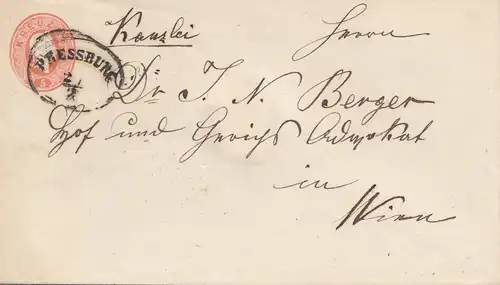 KREUZER
5
PRESSBURG
Kanzlei
Herrn
Dr J. N. Berger
Hof und Gerichs Advokat
in
Wien